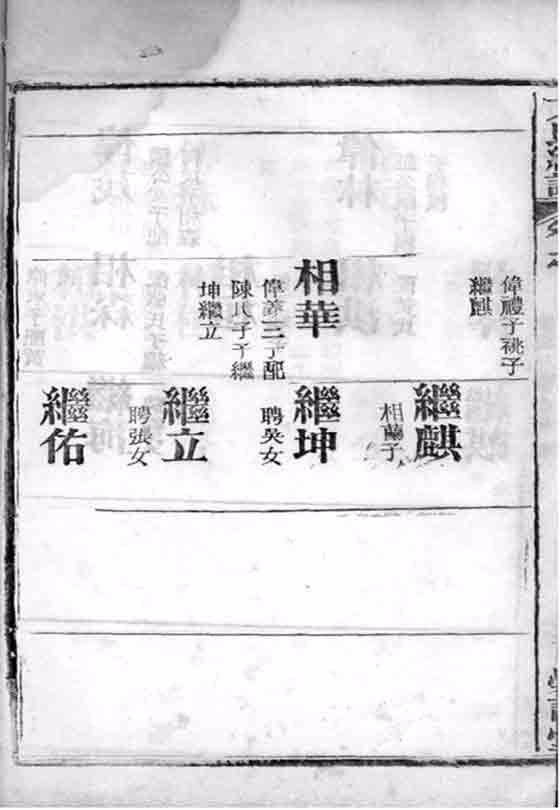 偉禮子祧子
繼麒
相華
偉謙三子配
陳氏子子繼
坤繼立
繼麒
相蘭子
繼坤
聘吳女
繼立
聘張女
繼佑